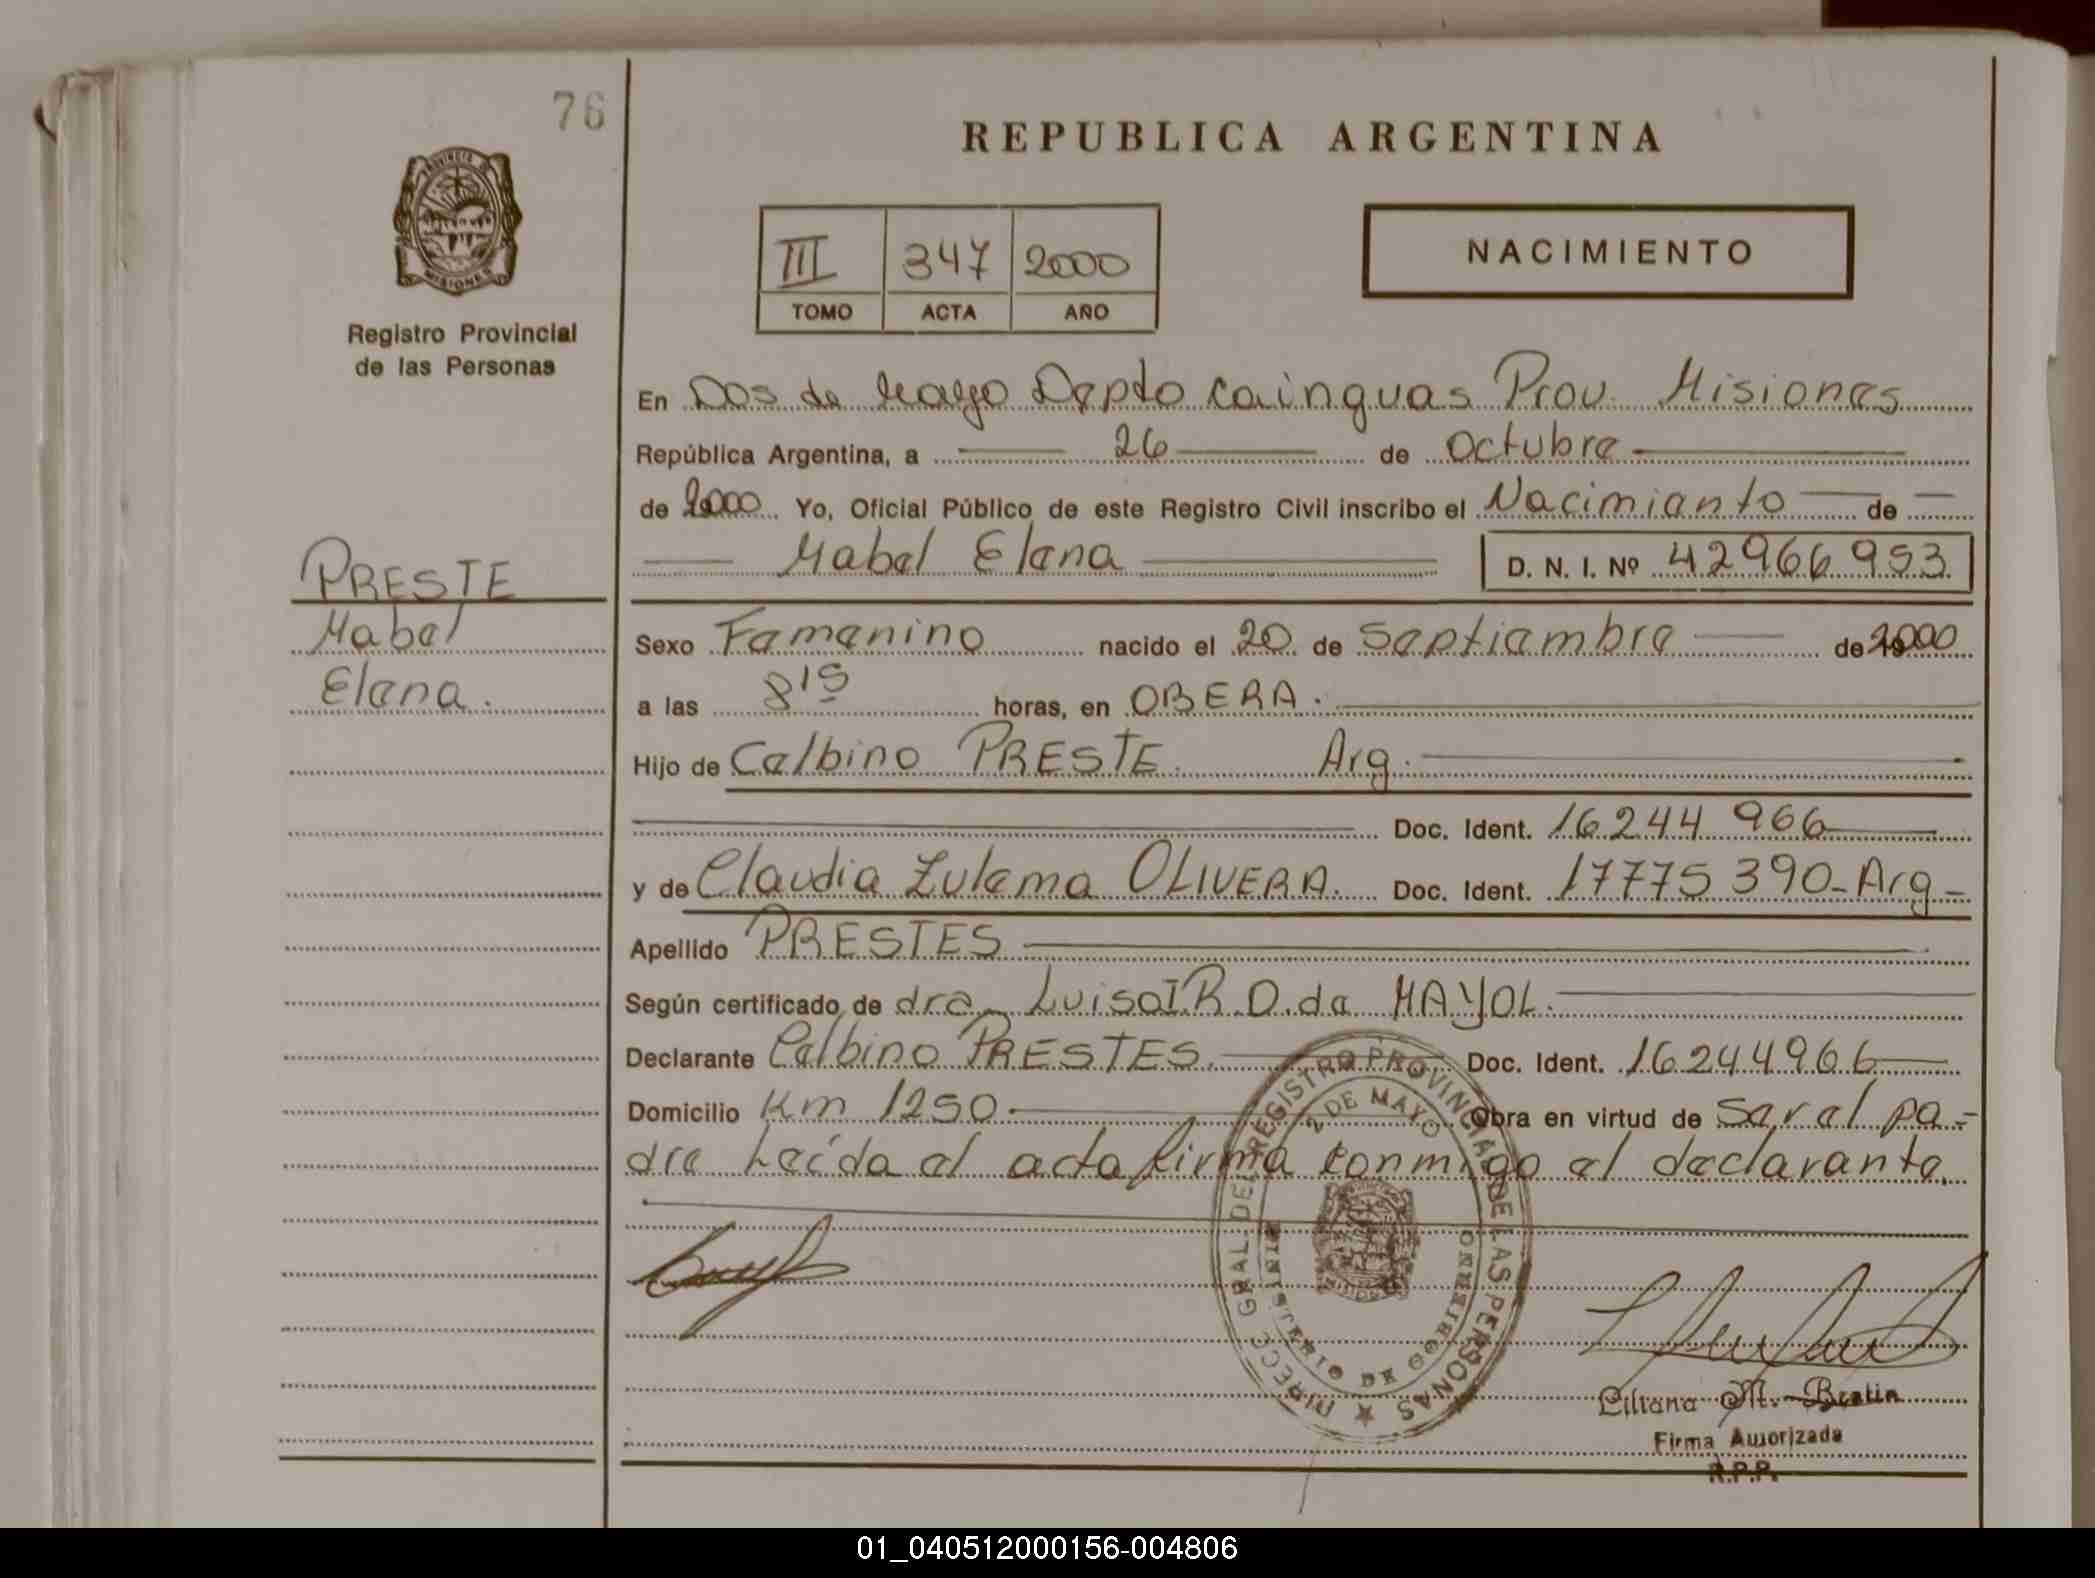 76
REPUBLICA ARGENTINA
PROVINCIA DE
MISIONES
Registro Provincial
de las Personas
III 347 2000
TOMO ACTA AÑO
NACIMIENTO
En Dos de Mayo Depto Cainguas Prov. Misiones
República Argentina, a 26 de Octubre
de 2000 Yo, Oficial Público de este Registro Civil inscribo el Nacimiento de
Mabel Elena D. N. I. Nº 42966953
PRESTE
Mabel
Elena.
Sexo Femenino nacido el 20 de Septiembre de 2000
a las 8 15 horas, en OBERA.
Hijo de Celbino PRESTE. Arg.
Doc. Ident. 16244 966
y de Claudia Zulema OLIVERA. Doc. Ident. 17775390-Arg-
Apellido PRESTES
Según certificado de dra Luisa I R D. de MAYOL.
Declarante Celbino PRESTES. Doc. Ident. 16244966
Domicilio Km 1250. Obra en virtud de ser el pa-
dre Leída el acta firma conmigo el declarante.
DIRECC. GRAL. DEL REGISTRO PROVINCIAL DE LAS PERSONAS
2 DE MAYO
MINISTERIO DE GOBIERNO
MISIONES
Liliana M. Bratin
Firma Autorizada
R.P.P.
01_040512000156-004806